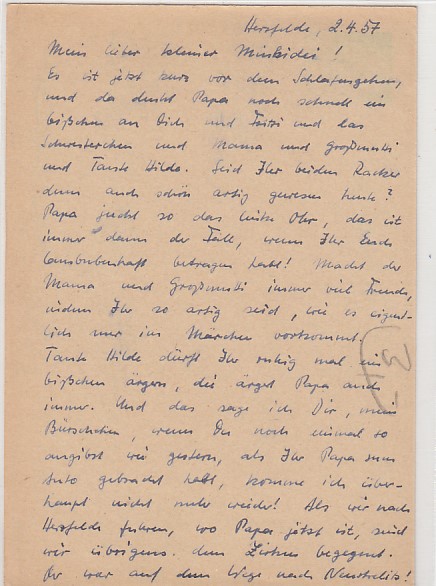 Herzfelde, 2.4.57
Mein lieber kleiner !
Es ist jetzt kurz vor dem Schlafengehen,
und da denkt Papa noch schnell ein
bißchen an Dich und Fritzi und das
Schwesterchen und Mama und Großmutti
und Tante Hilde. Seid Ihr beiden Racker
denn auch schön artig gewesen heute?
Papa juckt so das linke Ohr, das ist
immer dann der Fall, wenn Ihr Euch
lausbubenhaft betragen habt! Macht der
Mama und Großmutti immer viel Freude,
indem Ihr so artig seid, wie es eigent-
lich nur im Märchen vorkommt.
Tante Hilde dürft Ihr ruhig mal ein
bißchen ärgern, die ärgert Papa auch
immer. Und das sage ich Dir, mein
Bürschchen, wenn Du noch einmal so
angibst wie gestern, als Ihr Papa zum
Auto gebracht habt, komme ich über-
haupt nicht mehr wieder! Als wir nach
Herzfelde fuhren, wo Papa jetzt ist, sind
wir übrigens dem Zirkus begegnet.
Er war auf dem Wege nach Neustrelitz!
3,-